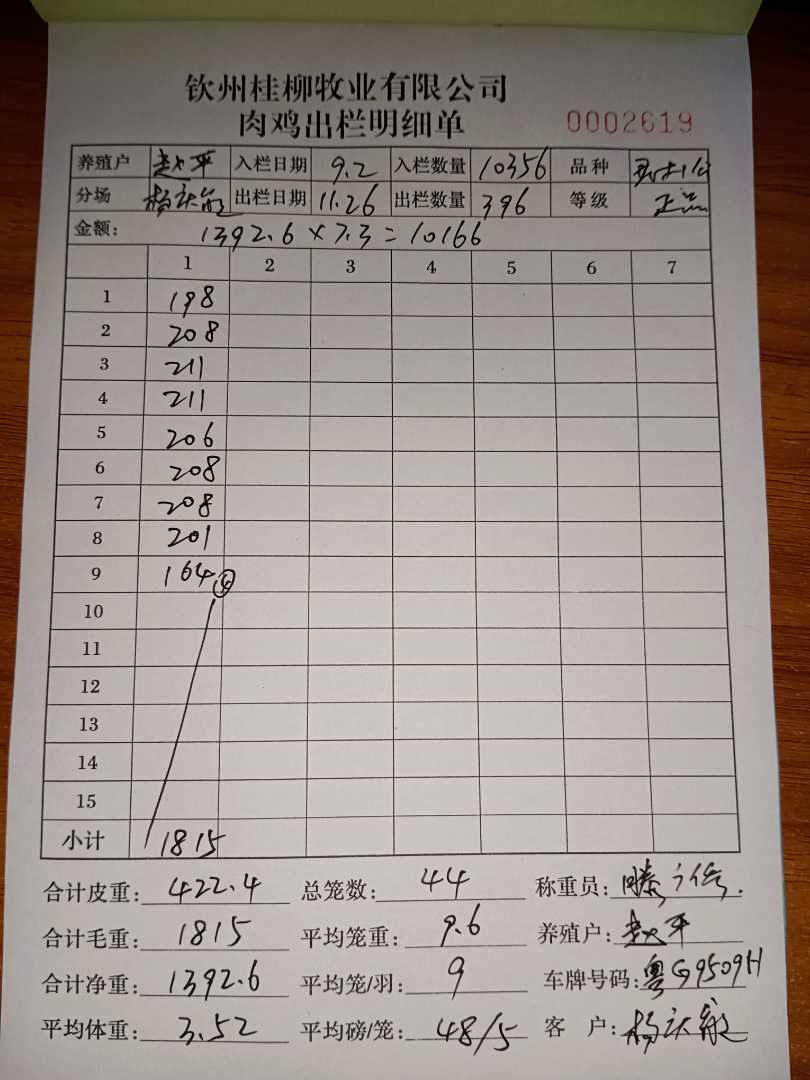 钦州桂柳牧业有限公司
肉鸡出栏明细单 0002619
养殖户 赵平 入栏日期 9.2 入栏数量 10356 品种
分场 杨庆 出栏日期 11.26 出栏数量 396 等级 正品
金额: 1392.6×7.3=10166
1 2 3 4 5 6 7
1 198
2 208
3 211
4 211
5 206
6 208
7 208
8 201
9 164 ④
10
11
12
13
14
15
小计 1815
合计皮重: 422.4 总笼数: 44 称重员:
合计毛重: 1815 平均笼重: 9.6 养殖户: 赵平
合计净重: 1392.6 平均笼/羽: 9 车牌号码: 粤G9509H
平均体重: 3.52 平均磅/笼: 48/5 客户: 杨庆